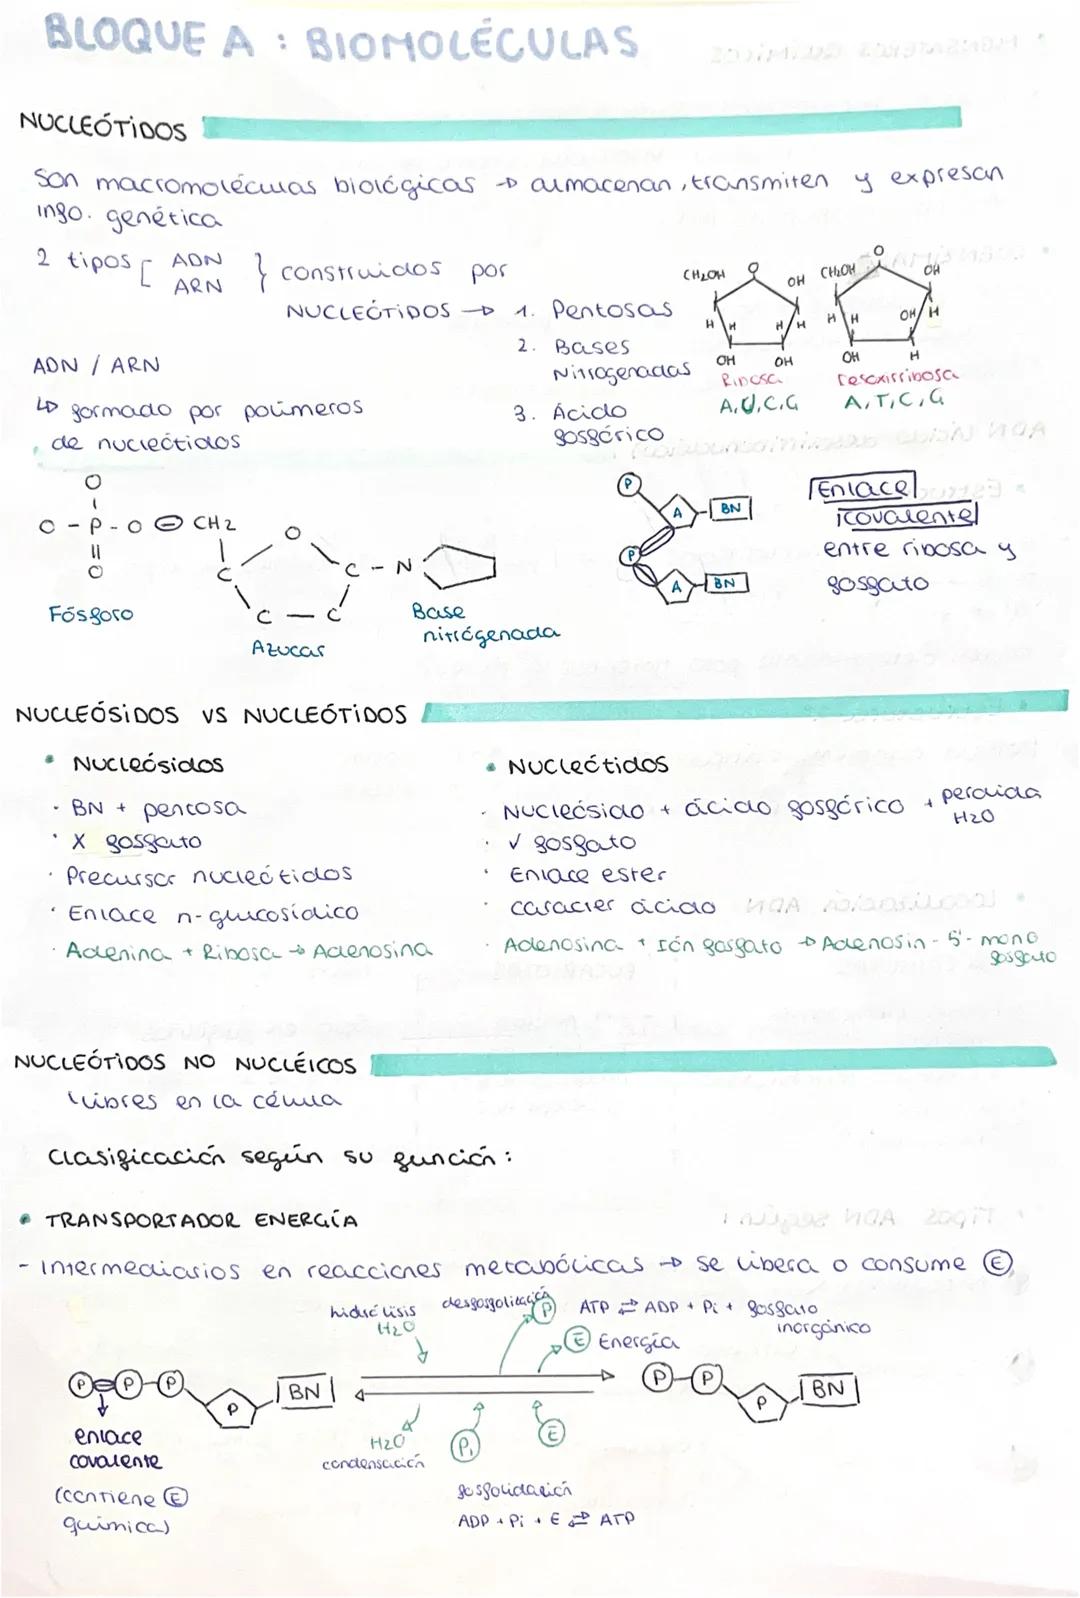 BLOQUE A : BIOMOLÉCULAS
NUCLEÓTIDOS
Son macromoléculas biológicas → almacenan, transmiten y expresan
info. genética
2 tipos [ ADN
ARN } construidos por
NUCLEÓTIDOS → 1. Pentosas
2. Bases
Nitrogenadas
3. Ácido
fosfórico
CH2OH O OH
H H H H
OH OH
Ribosa
A,U,C,G
CH2OH O OH
H H OH H
OH H
Desoxirribosa
A,T,C,G
ADN / ARN
↳ formado por polímeros
de nucleótidos
O
O - P - O ⊖ CH2
O
O
C C - N
C — C
Fósforo
Azucar
Base
nitrógenada
P
A BN
P
A BN
Enlace
covalente
entre ribosa y
fosfato
NUCLEÓSIDOS VS NUCLEÓTIDOS
• Nucleósidos
· BN + pentosa
· X fosfato
· Precursor nucleótidos
· Enlace n-glucosídico
· Adenina + Ribosa → Adenosina
• Nucleótidos
· Nucleósido + ácido fosfórico + perdida
H2O
· ✓ fosfato
· Enlace ester
· caracter ácido
· Adenosina + Ión fosfato → Adenosin - 5'- mono
fosfato
NUCLEÓTIDOS NO NUCLÉICOS
libres en la célula
Clasificación según su función:
• TRANSPORTADOR ENERGÍA
- Intermediarios en reacciones metabólicas → se libera o consume Ⓔ
hidrólisis
H2O
P
ATP ⇄ ADP + Pi + fosfato
inorgánico
Ⓔ Energía
P P P
P
BN
P P
P
BN
enlace
covalente
(contiene Ⓔ
química)
H2O
condensación
Pi
E
ADP + Pi + E ⇄ ATP